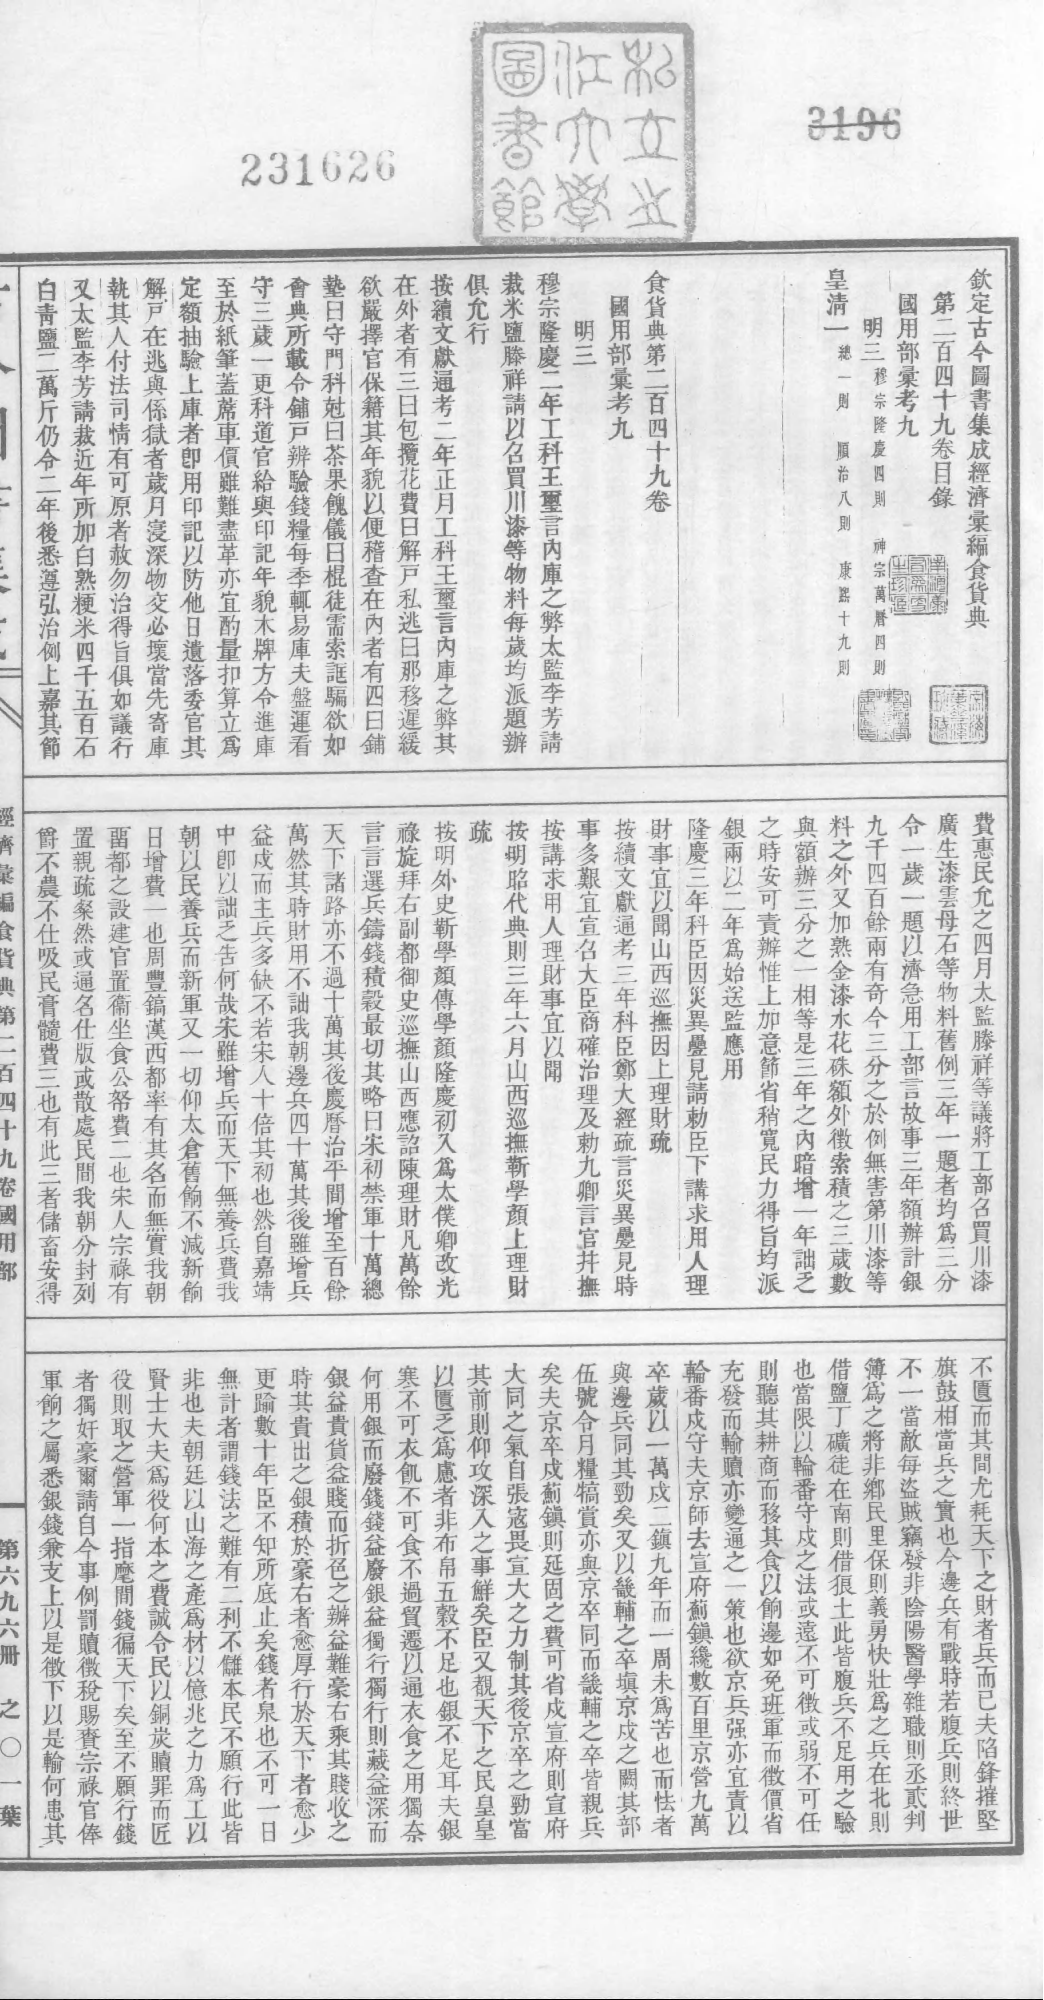 3196
231626
私立之江大學圖書館
欽定古今圖書集成經濟彙編食貨典
第二百四十九卷目錄
國用部彙考九
明三 穆宗隆慶四則 神宗萬曆四則
皇清一 總一則 順治八則 康熙十九則
食貨典第二百四十九卷
國用部彙考九
明三
穆宗隆慶二年工科王璽言內庫之弊太監李芳請
裁米鹽滕祥請以召買川漆等物料每歲均派題辦
俱允行
按續文獻通考二年正月工科王璽言內庫之弊其
在外者有三曰包攬花費曰解戸私逃曰那移遲緩
欲嚴擇官保籍其年貌以便稽查在內者有四曰鋪
墊曰守門科尅曰茶果餽儀曰棍徒需索誆騙欲如
會典所載令鋪戸辨驗錢糧每季輒易庫夫盤運看
守三歲一更科道官給與印記年貌木牌方令進庫
至於紙筆蓋蓆車價雖難盡革亦宜酌量扣算立爲
定額抽驗上庫者卽用印記以防他日遺落委官其
解戸在逃與係獄者歲月寖深物交必壞當先寄庫
執其人付法司情有可原者赦勿治得旨俱如議行
又太監李芳請裁近年所加白熟粳米四千五百石
白靑鹽二萬斤仍令二年後悉遵弘治例上嘉其節
費惠民允之四月太監滕祥等議將工部召買川漆
廣生漆雲母石等物料舊例三年一題者均爲三分
令一歲一題以濟急用工部言故事三年額辦計銀
九千四百餘兩有奇今三分之於例無害第川漆等
料之外又加熟金漆水花硃額外徵索積之三歲數
與額辦三分之一相等是三年之內暗增一年詘乏
之時安可責辦惟上加意節省稍寬民力得旨均派
銀兩以二年爲始送監應用
隆慶三年科臣因災異疊見請勅臣下講求用人理
財事宜以聞山西巡撫因上理財疏
按續文獻通考三年科臣鄭大經疏言災異疊見時
事多艱宜宣召大臣商確治理及勅九卿言官幷撫
按講求用人理財事宜以聞
按明昭代典則三年六月山西巡撫靳學顏上理財
疏
按明外史靳學顏傳學顏隆慶初入爲太僕卿改光
祿旋拜右副都御史巡撫山西應詔陳理財凡萬餘
言言選兵鑄錢積穀最切其略曰宋初禁軍十萬總
天下諸路亦不過十萬其後慶曆治平間增至百餘
萬然其時財用不詘我朝邊兵四十萬其後雖增兵
益戍而主兵多缺不若宋人十倍其初也然自嘉靖
中卽以詘乏告何哉宋雖增兵而天下無養兵費我
朝以民養兵而新軍又一切仰太倉舊餉不減新餉
日增費一也周豐鎬漢西都率有其名而無實我朝
畱都之設建官置衞坐食公帑費二也宋人宗祿有
置親疏粲然或通名仕版或散處民間我朝分封列
爵不農不仕吸民膏髓費三也有此三者儲畜安得
不匱而其間尤耗天下之財者兵而已夫陷鋒摧堅
旗鼓相當兵之實也今邊兵有戰時若腹兵則終世
不一當敵每盜賊竊發非陰陽醫學雜職則丞貳判
簿爲之將非鄉民里保則義勇快壯爲之兵在北則
借鹽丁礦徒在南則借狼土此皆腹兵不足用之驗
也當限以輪番守戍之法或遠不可徵或弱不可任
則聽其耕商而移其食以餉邊如免班軍而徵價省
充發而輸贖亦變通之一策也欲京兵强亦宜責以
輪番戍守夫京師去宣府薊鎭纔數百里京營九萬
卒歲以一萬戍二鎭九年而一周未爲苦也而怯者
與邊兵同其勁矣又以畿輔之卒塡京戍之闕其部
伍號令月糧犒賞亦與京卒同而畿輔之卒皆親兵
矣夫京卒戍薊鎭則延固之費可省戍宣府則宣府
大同之氣自張寇畏宣大之力制其後京卒之勁當
其前則仰攻深入之事鮮矣臣又觀天下之民皇皇
以匱乏爲慮者非布帛五穀不足也銀不足耳夫銀
寒不可衣飢不可食不過貿遷以通衣食之用獨奈
何用銀而廢錢錢益廢銀益獨行獨行則藏益深而
銀益貴貨益賤而折色之辦益難豪右乘其賤收之
時其貴出之銀積於豪右者愈厚行於天下者愈少
更踰數十年臣不知所底止矣錢者泉也不可一日
無計者謂錢法之難有二利不讎本民不願行此皆
非也夫朝廷以山海之產爲材以億兆之力爲工以
賢士大夫爲役何本之費誠令民以銅炭贖罪而匠
役則取之營軍一指麾間錢徧天下矣至不願行錢
者獨奸豪爾請自今事例罰贖徵稅賜賚宗祿官俸
軍餉之屬悉銀錢兼支上以是徵下以是輸何患其
經濟彙編食貨典第二百四十九卷國用部
第六九六冊 之〇一葉